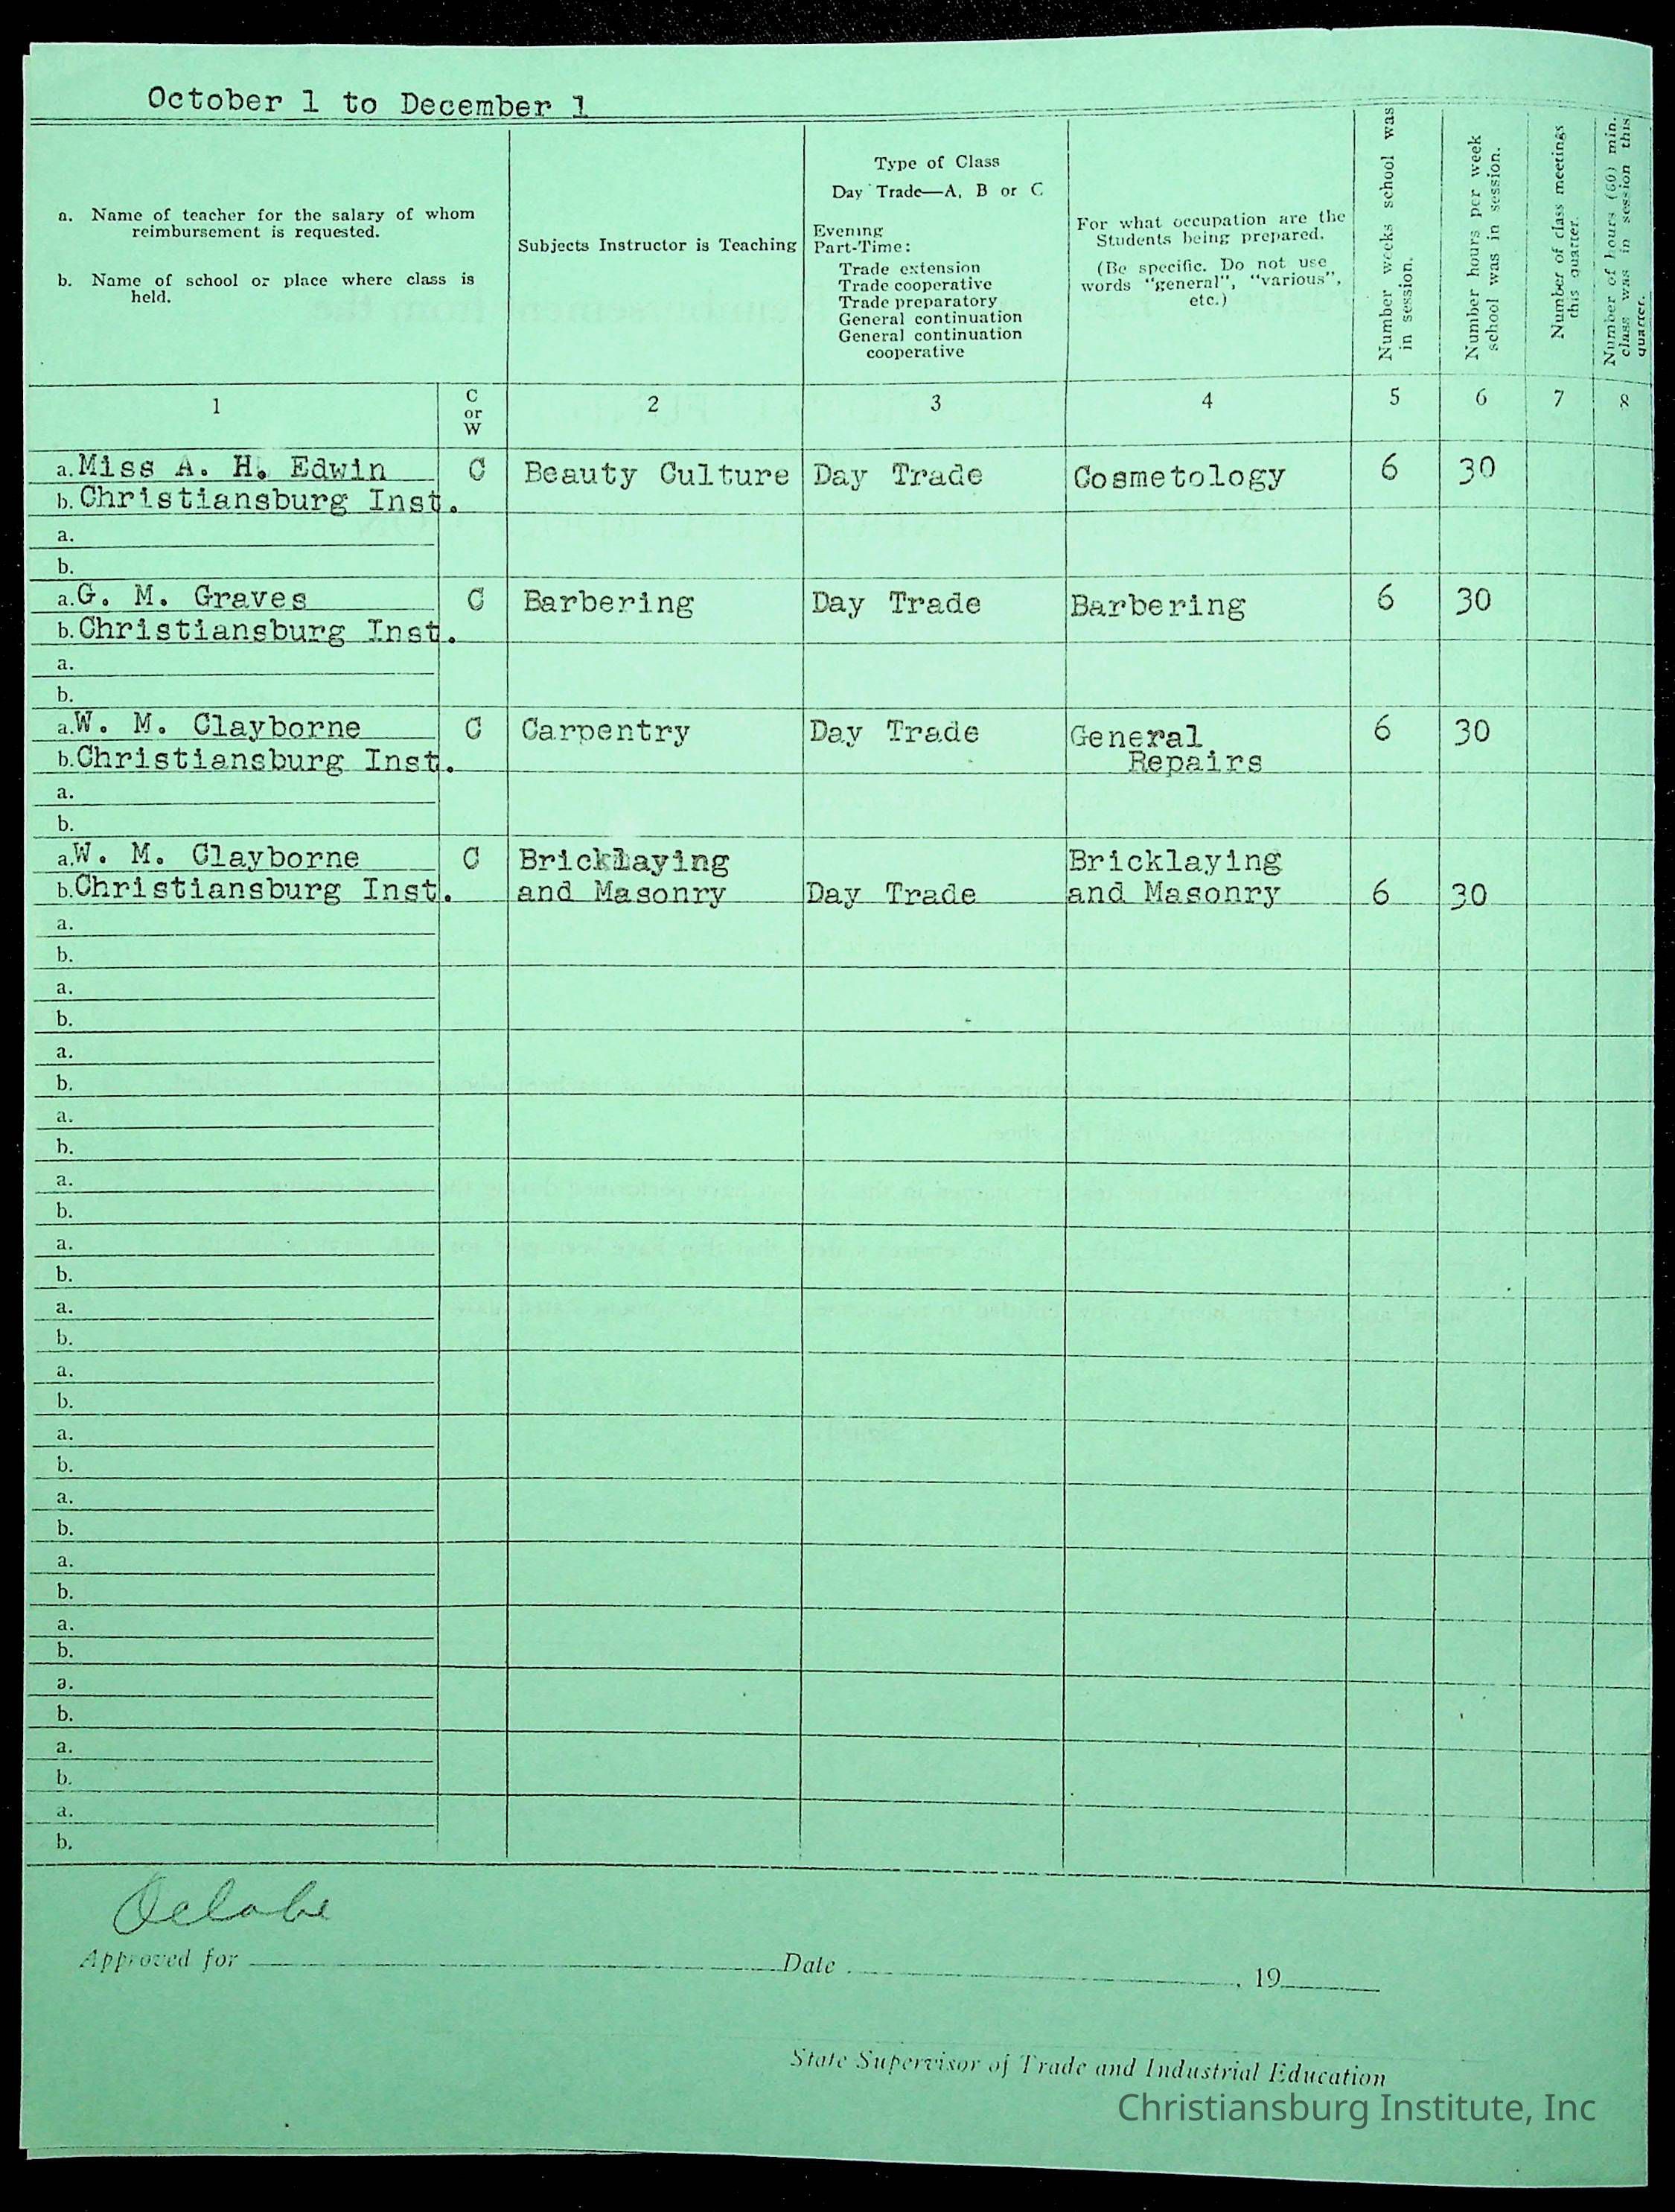 October 1 to December 1
a. Name of teacher for the salary of whom
reimbursement is requested.
b. Name of school or place where class is
held.
Subjects Instructor is Teaching
Type of Class
Day Trade—A, B or C
Evening
Part-Time:
Trade extension
Trade cooperative
Trade preparatory
General continuation
General continuation
cooperative
For what occupation are the
Students being prepared.
(Be specific. Do not use
words "general", "various",
etc.)
Number weeks school was
in session.
Number hours per week
school was in session.
Number of class meetings
this quarter.
Number of hours (60) min.
class was in session this
quarter.
1 C or W 2 3 4 5 6 7 8
a. Miss A. H. Edwin C Beauty Culture Day Trade Cosmetology 6 30
b. Christiansburg Inst.
a.
b.
a. G. M. Graves C Barbering Day Trade Barbering 6 30
b. Christiansburg Inst.
a.
b.
a. W. M. Clayborne C Carpentry Day Trade General 6 30
b. Christiansburg Inst. Repairs
a.
b.
a. W. M. Clayborne C Bricklaying Bricklaying
b. Christiansburg Inst. and Masonry Day Trade and Masonry 6 30
a.
b.
a.
b.
a.
b.
a.
b.
a.
b.
a.
b.
a.
b.
a.
b.
a.
b.
a.
b.
a.
b.
a.
b.
a.
b.
a.
b.
a.
b.
Octobe
Approved for Date , 19
State Supervisor of Trade and Industrial Education
Christiansburg Institute, Inc